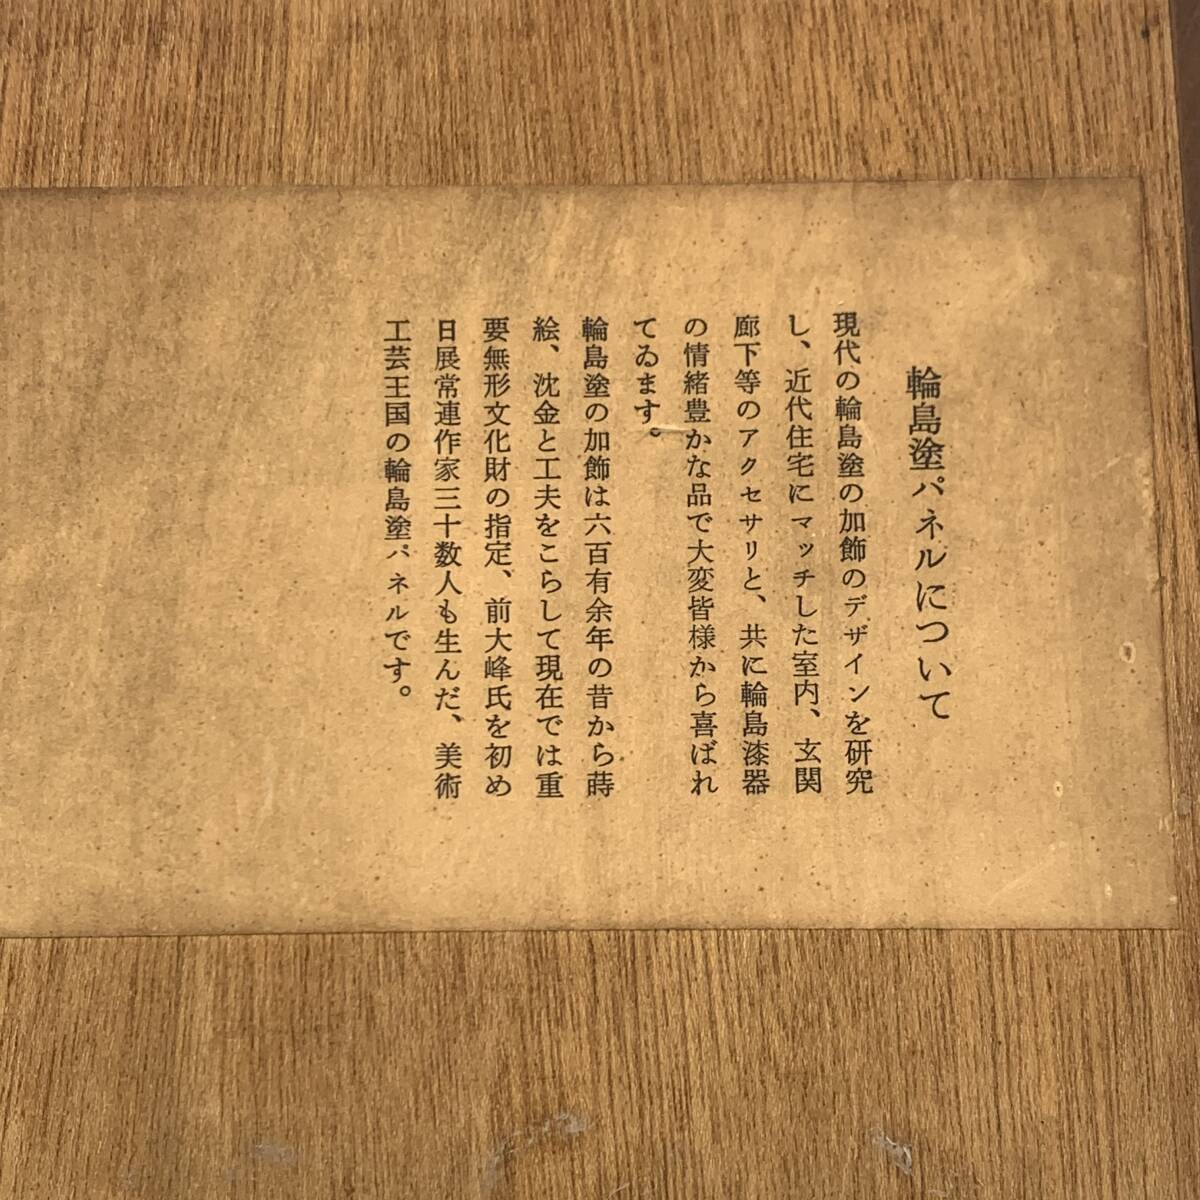 輪島塗パネルについて
現代の輪島塗の加飾のデザインを研究
し、近代住宅にマッチした室内、玄関
廊下等のアクセサリと、共に輪島漆器
の情緒豊かな品で大変皆様から喜ばれ
てゐます。
輪島塗の加飾は六百有余年の昔から蒔
絵、沈金と工夫をこらして現在では重
要無形文化財の指定、前大峰氏を初め
日展常連作家三十数人も生んだ、美術
工芸王国の輪島塗パネルです。